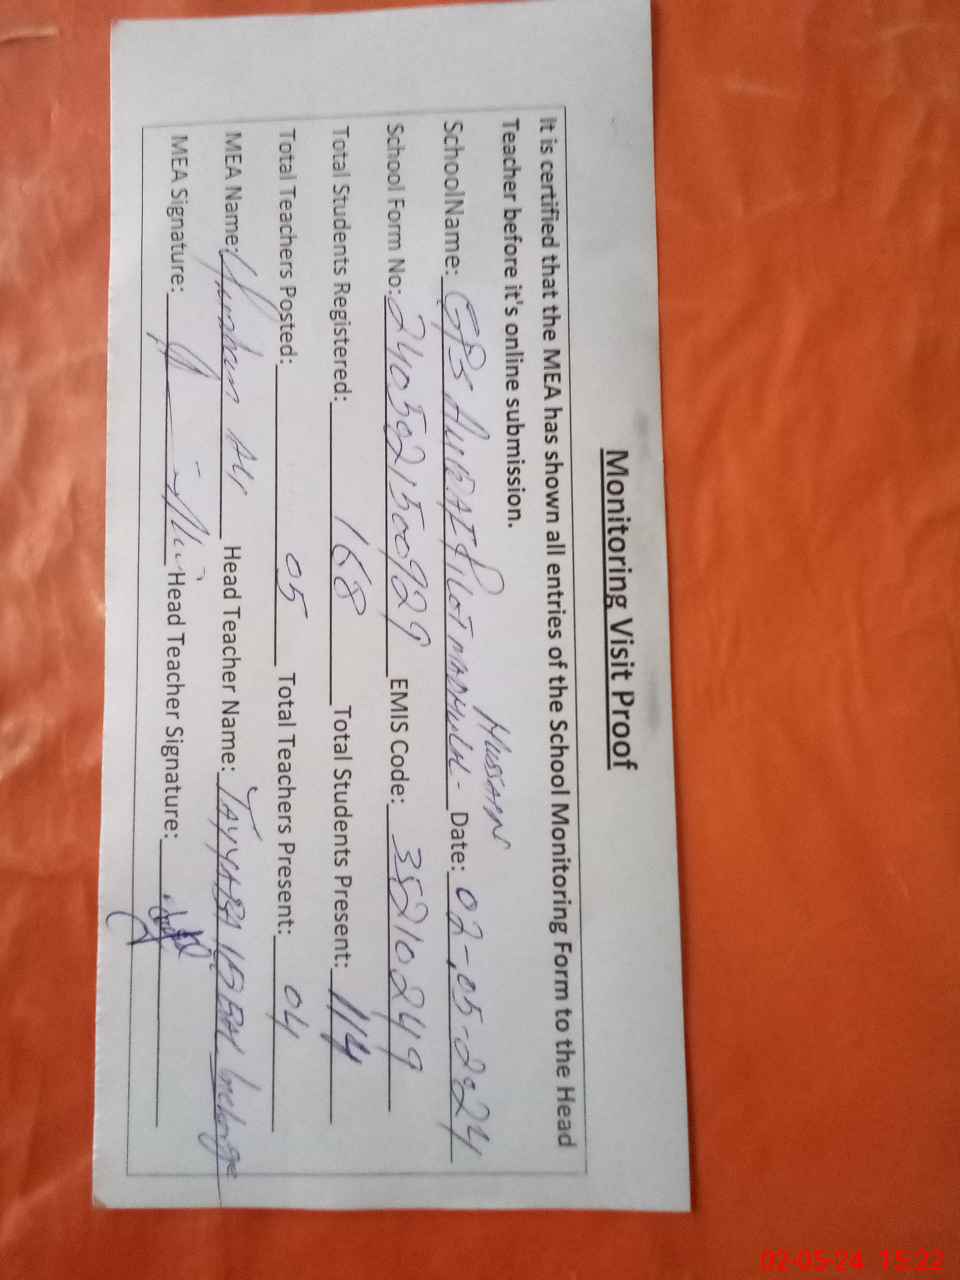 Monitoring Visit Proof
It is certified that the MEA has shown all entries of the School Monitoring Form to the Head
Teacher before it's online submission.
Hussain
School Name: GPS Pilot Date: 02-05-2024
School Form No: 2405021500929 EMIS Code: 35210249
Total Students Registered: 168 Total Students Present: 114
Total Teachers Posted: 05 Total Teachers Present: 04
MEA Name: Ali Head Teacher Name: TAYYABA Incharge
MEA Signature: Head Teacher Signature:
02-05-24 15:22